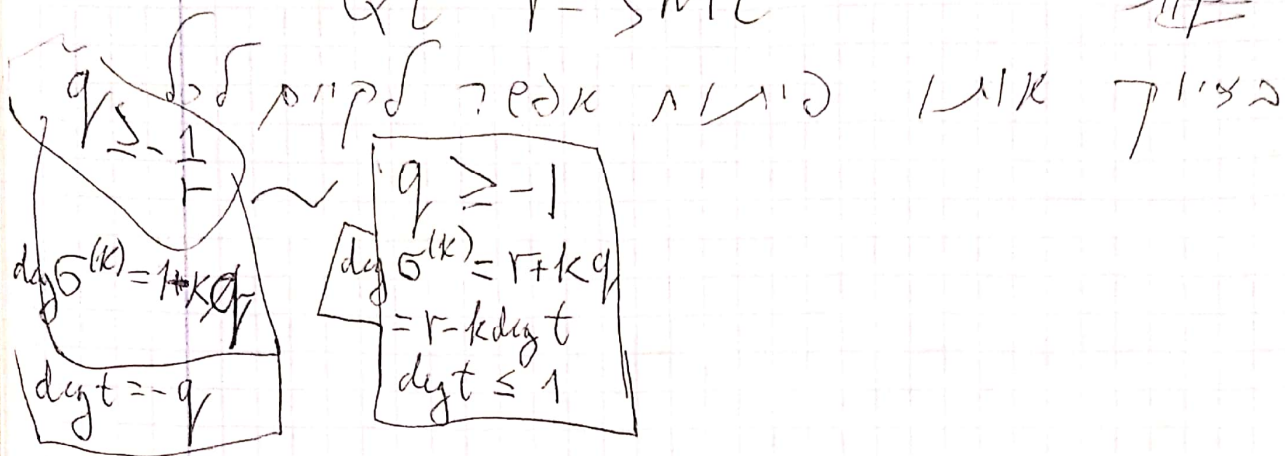 בדיוק אותו פיתוח אפשר לקיים לכל
q ≥ -1/r ~ q ≥ -1
deg σ^(k) = 1+kq
deg t = -q
deg σ^(k) = r+kq
= r-k deg t
deg t ≤ 1